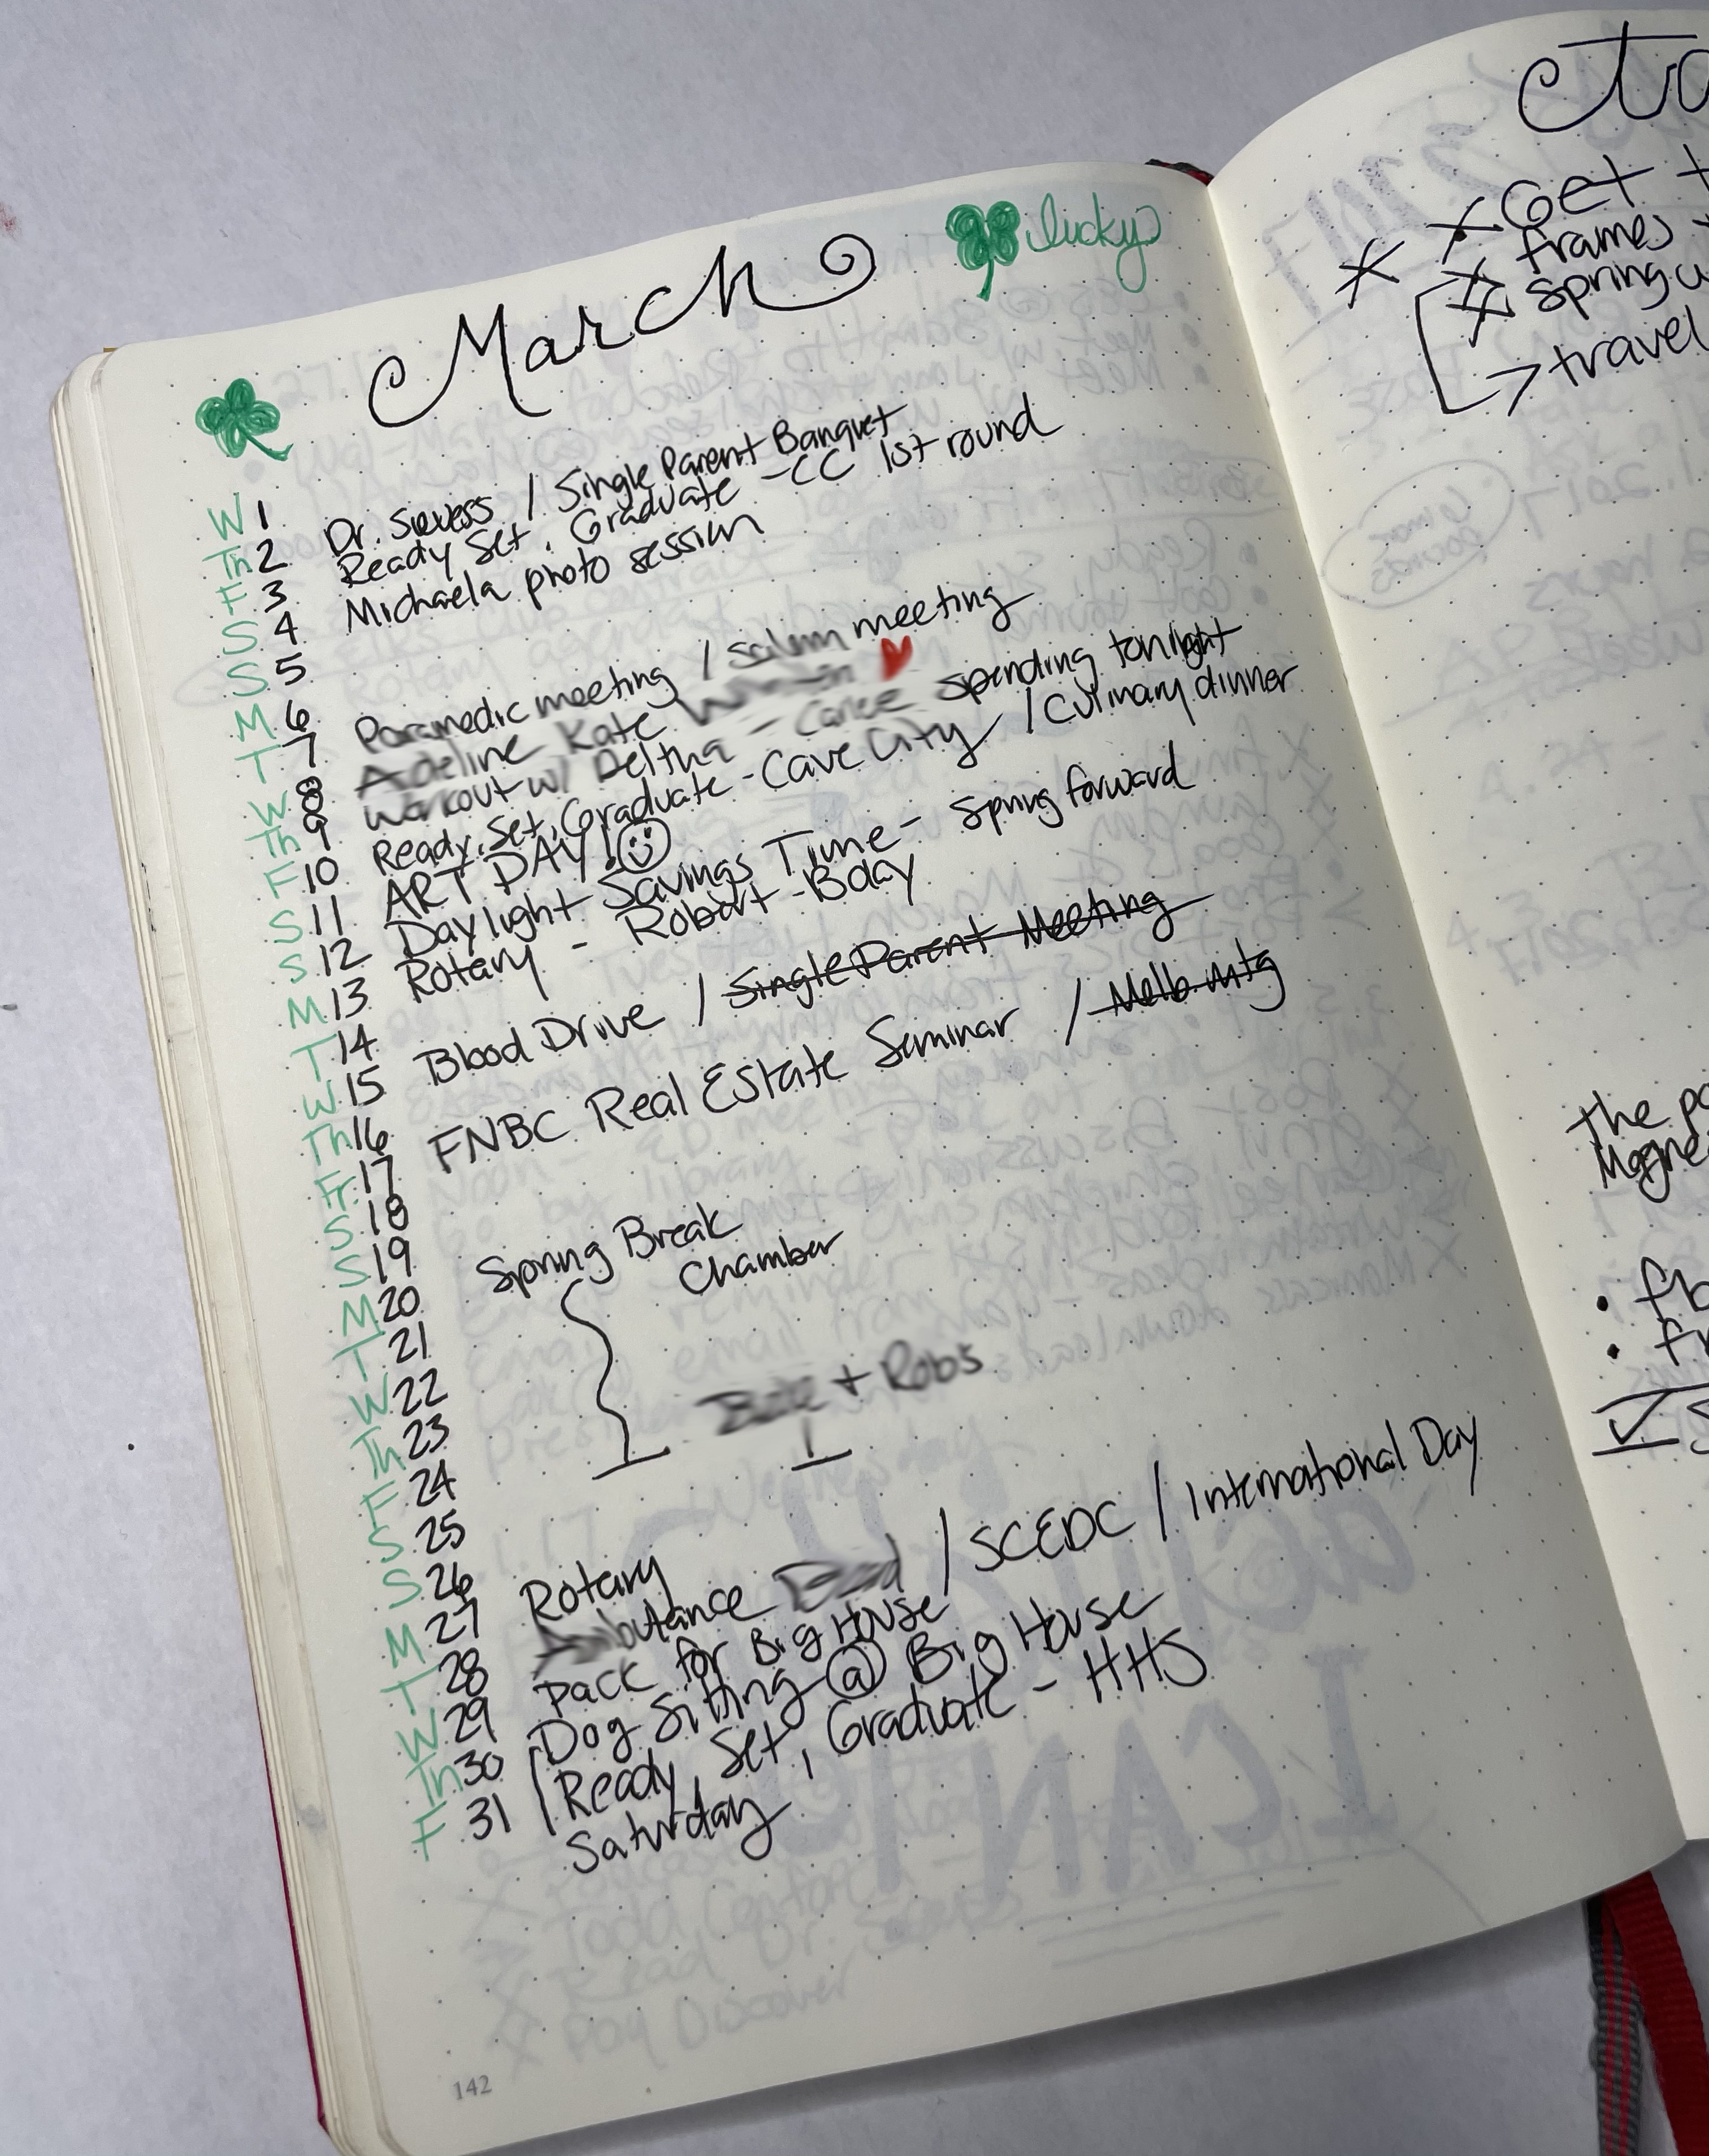 March
lucky
W 1 Dr. Sievess / Single Parent Banquet
Th 2 Ready Set, Graduate - CC 1st round
F 3 Michaela photo session
S 4
S 5
M 6 Paramedic meeting / meeting
T 7 Adeline Kate
W 8 Workout w/ Deltha - Caree spending tonight
Th 9 Ready, Set, Graduate - Cave City / Culinary dinner
F 10 ART DAY!
S 11
S 12 Daylight Savings Time - Spring forward
M 13 Rotary - Robert - Bday
T 14
W 15 Blood Drive / Single Parent Meeting
Th 16
Fr. 17 FNBC Real Estate Seminar / Melb. mtg
S 18
S 19
M 20 Spring Break
T 21 Chamber
W 22
Th 23
F 24 + Robs
S 25
S 26
M 27 Rotary
T 28 Ambulance / SCEDC / International Day
W 29 Pack for Big House
Th 30 Dog Sitting @ Big House
F 31 Ready, Set, Graduate - HHS
Saturday
142
Get
frames
spring
travel
The